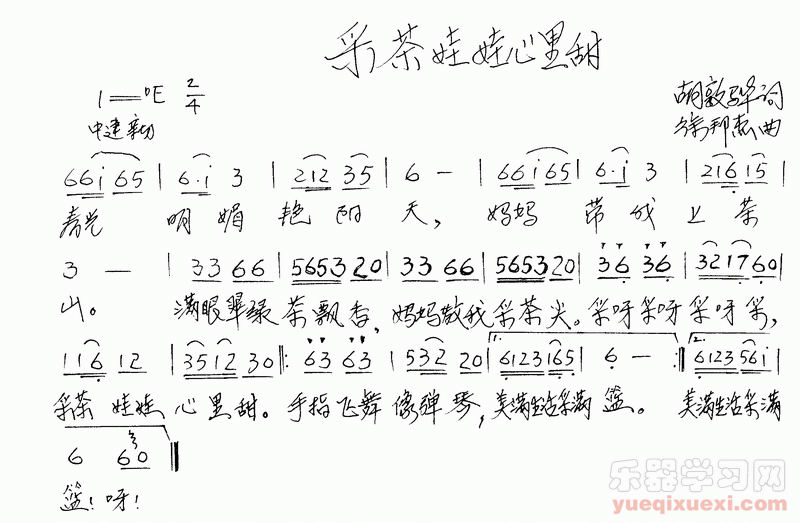 采茶娃娃心里甜
1=E 2/4
胡敦骅词
中速
徐邦杰曲
66i 65 | 6·i 3 | 212 35 | 6 - | 66i65 | 6·i 3 | 216 15 |
春光 明媚 艳阳 天， 妈妈 带我 上 茶
3 - | 33 66 | 5653 20 | 33 66 | 5653 20 | 36 36 | 3217 60 |
山。 满眼翠绿 茶飘香，妈妈教我 采茶尖。采呀采呀 采呀采，
116 12 | 3512 30 |: 63 63 | 532 20 | 1. 6123165 | 6 - :| 2. 612356i |
采茶 娃娃 心里甜。手指飞舞 像弹琴，美满生活采满 篮。 美满生活采满
6 60 ‖
篮！呀！
乐器学习网
yueqixuexi.com